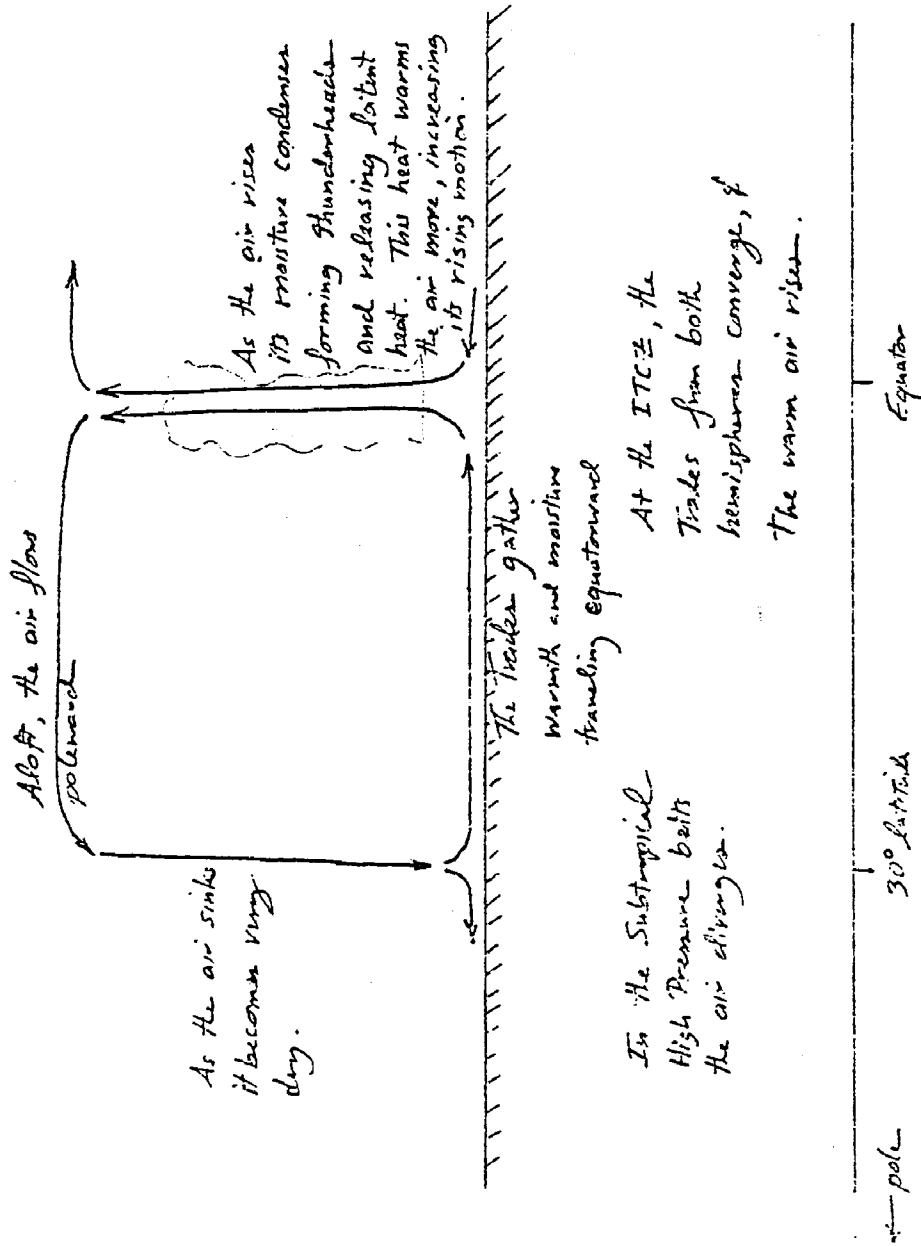 Aloft, the air flows
poleward
As the air rises
its moisture condenses
forming thunderheads
and releasing latent
heat. This heat warms
the air more, increasing
its rising motion.
As the air sinks
it becomes very
dry.
The Trades gather
warmth and moisture
traveling equatorward
In the Subtropical
High Pressure belts
the air diverges.
At the ITCZ, the
Trades from both
hemispheres converge, &
the warm air rises.
← pole
30° latitude
Equator